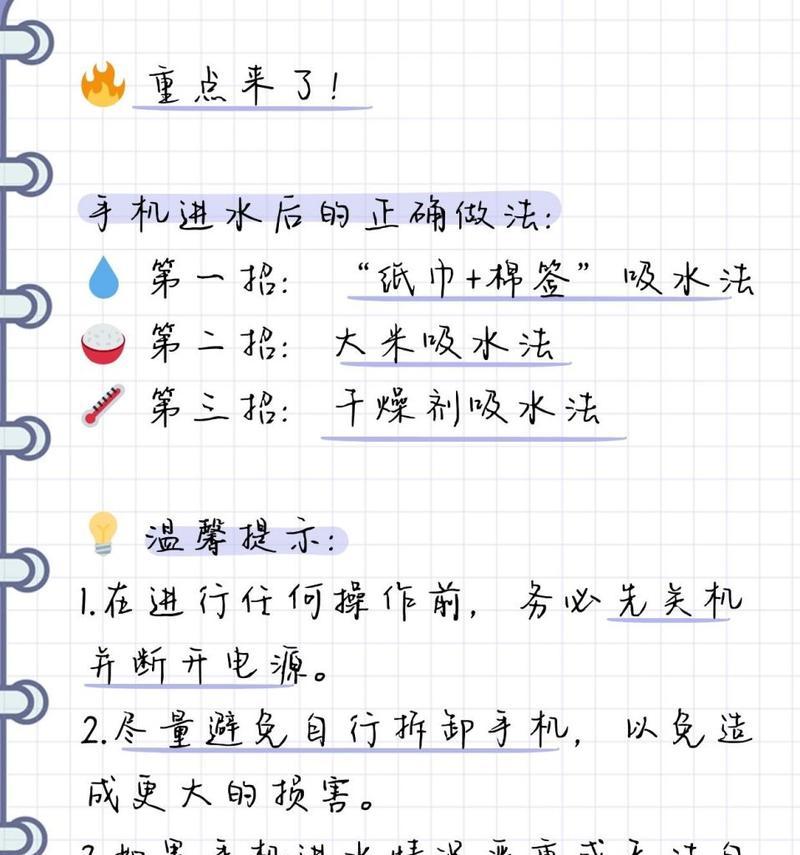 重点来了!
手机进水后的正确做法:
第一招: “纸巾+棉签”吸水法
第二招: 大米吸水法
第三招: 干燥剂吸水法
温馨提示:
1.在进行任何操作前, 务必先关机
并断开电源。
2.尽量避免自行拆卸手机, 以免造
成更大的损害。
3.如果手机进水情况严重或无法自